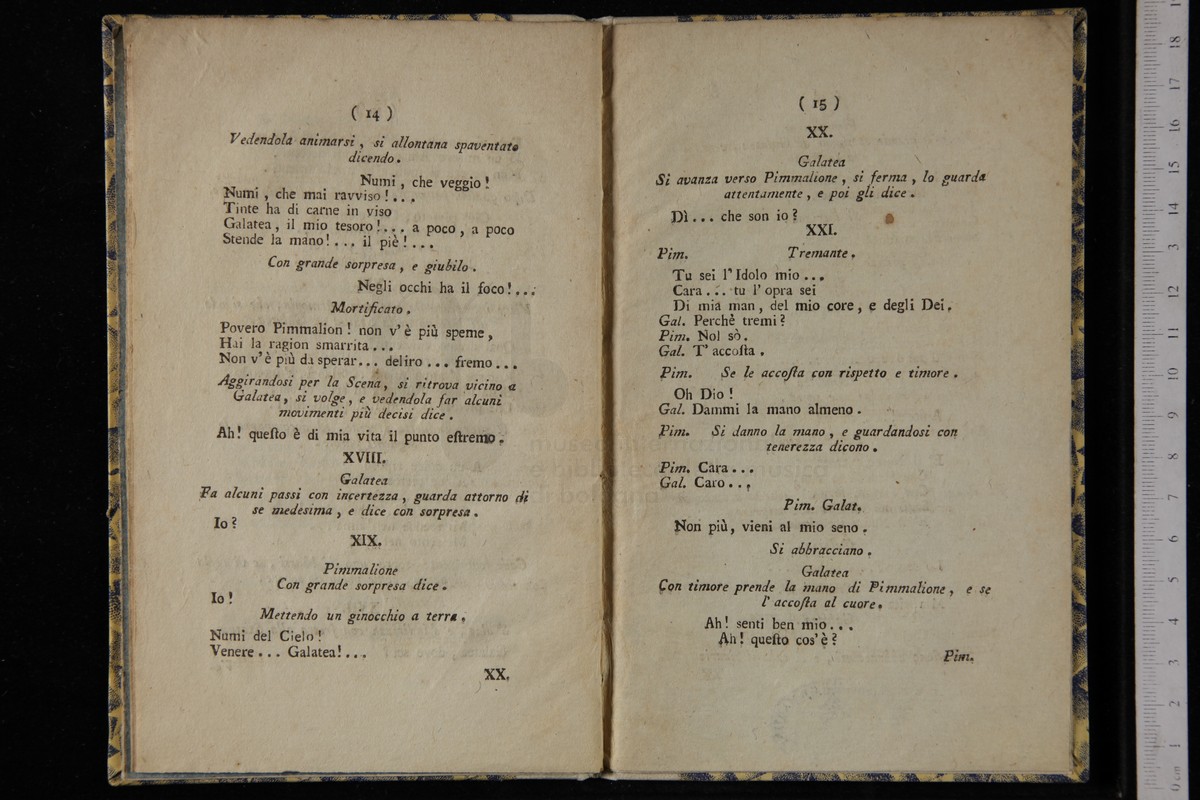 ( 14 )
Vedendola animarsi , si allontana spaventato
dicendo .
Numi , che veggio !
Numi , che mai ravviso ! . . .
Tinte ha di carne in viso
Galatea , il mio tesoro ! . . . a poco , a poco
Stende la mano ! . . . il piè ! . . .
Con grande sorpresa , e giubilo .
Negli occhi ha il foco ! . . .
Mortificato .
Povero Pimmalion ! non v' è più speme ,
Hai la ragion smarrita . . .
Non v' è più da sperar . . . deliro . . . fremo . . .
Aggirandosi per la Scena , si ritrova vicino a
Galatea , si volge , e vedendola far alcuni
movimenti più decisi dice .
Ah ! queſto è di mia vita il punto eſtremo .
XVIII.
Galatea
Fa alcuni passi con incertezza , guarda attorno di
se medesima , e dice con sorpresa .
Io ?
XIX.
Pimmalione
Con grande sorpresa dice .
Io !
Mettendo un ginocchio a terra .
Numi del Cielo !
Venere . . . Galatea ! . . .
XX.
( 15 )
XX.
Galatea
Si avanza verso Pimmalione , si ferma , lo guarda
attentamente , e poi gli dice .
Dì . . . che son io ?
XXI.
Pim. Tremante .
Tu sei l' Idolo mio . . .
Cara . . . tu l' opra sei
Di mia man , del mio core , e degli Dei .
Gal. Perchè tremi ?
Pim. Nol sò .
Gal. T' accoſta .
Pim. Se le accoſta con rispetto e timore .
Oh Dio !
Gal. Dammi la mano almeno .
Pim. Si danno la mano , e guardandosi con
tenerezza dicono .
Pim. Cara . . .
Gal. Caro . . .
Pim. Galat.
Non più , vieni al mio seno .
Si abbracciano .
Galatea
Con timore prende la mano di Pimmalione , e se
l' accoſta al cuore .
Ah ! senti ben mio . . .
Ah ! queſto cos' è ?
Pim.